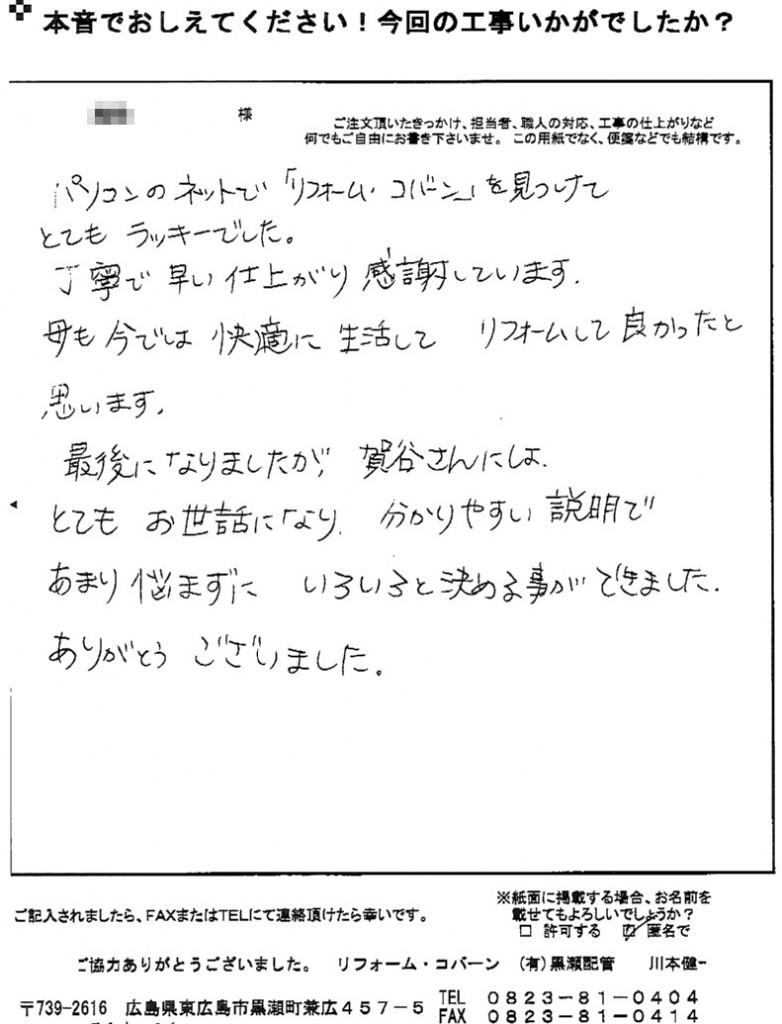 本音でおしえてください！今回の工事いかがでしたか？
様
ご注文頂いたきっかけ、担当者、職人の対応、工事の仕上がりなど
何でもご自由にお書き下さいませ。この用紙でなく、便箋などでも結構です。
パソコンのネットで「リフォーム・コバーン」を見つけて
とても ラッキーでした。
丁寧で 早い 仕上がり 感謝しています.
母も 今では 快適に 生活して リフォームして 良かったと
思います.
最後になりましたが、賀谷さんには、
とても お世話になり、分かりやすい 説明で
あまり 悩まずに いろいろと 決める事が できました.
ありがとう ございました。
ご記入されましたら、FAXまたはTELにて連絡頂けたら幸いです。
※紙面に掲載する場合、お名前を
載せてもよろしいでしょうか？
□ 許可する ☑ 匿名で
ご協力ありがとうございました。 リフォーム・コバーン （有）黒瀬配管 川本健一
〒739-2616 広島県東広島市黒瀬町兼広４５７－５
TEL ０８２３－８１－０４０４
FAX ０８２３－８１－０４１４